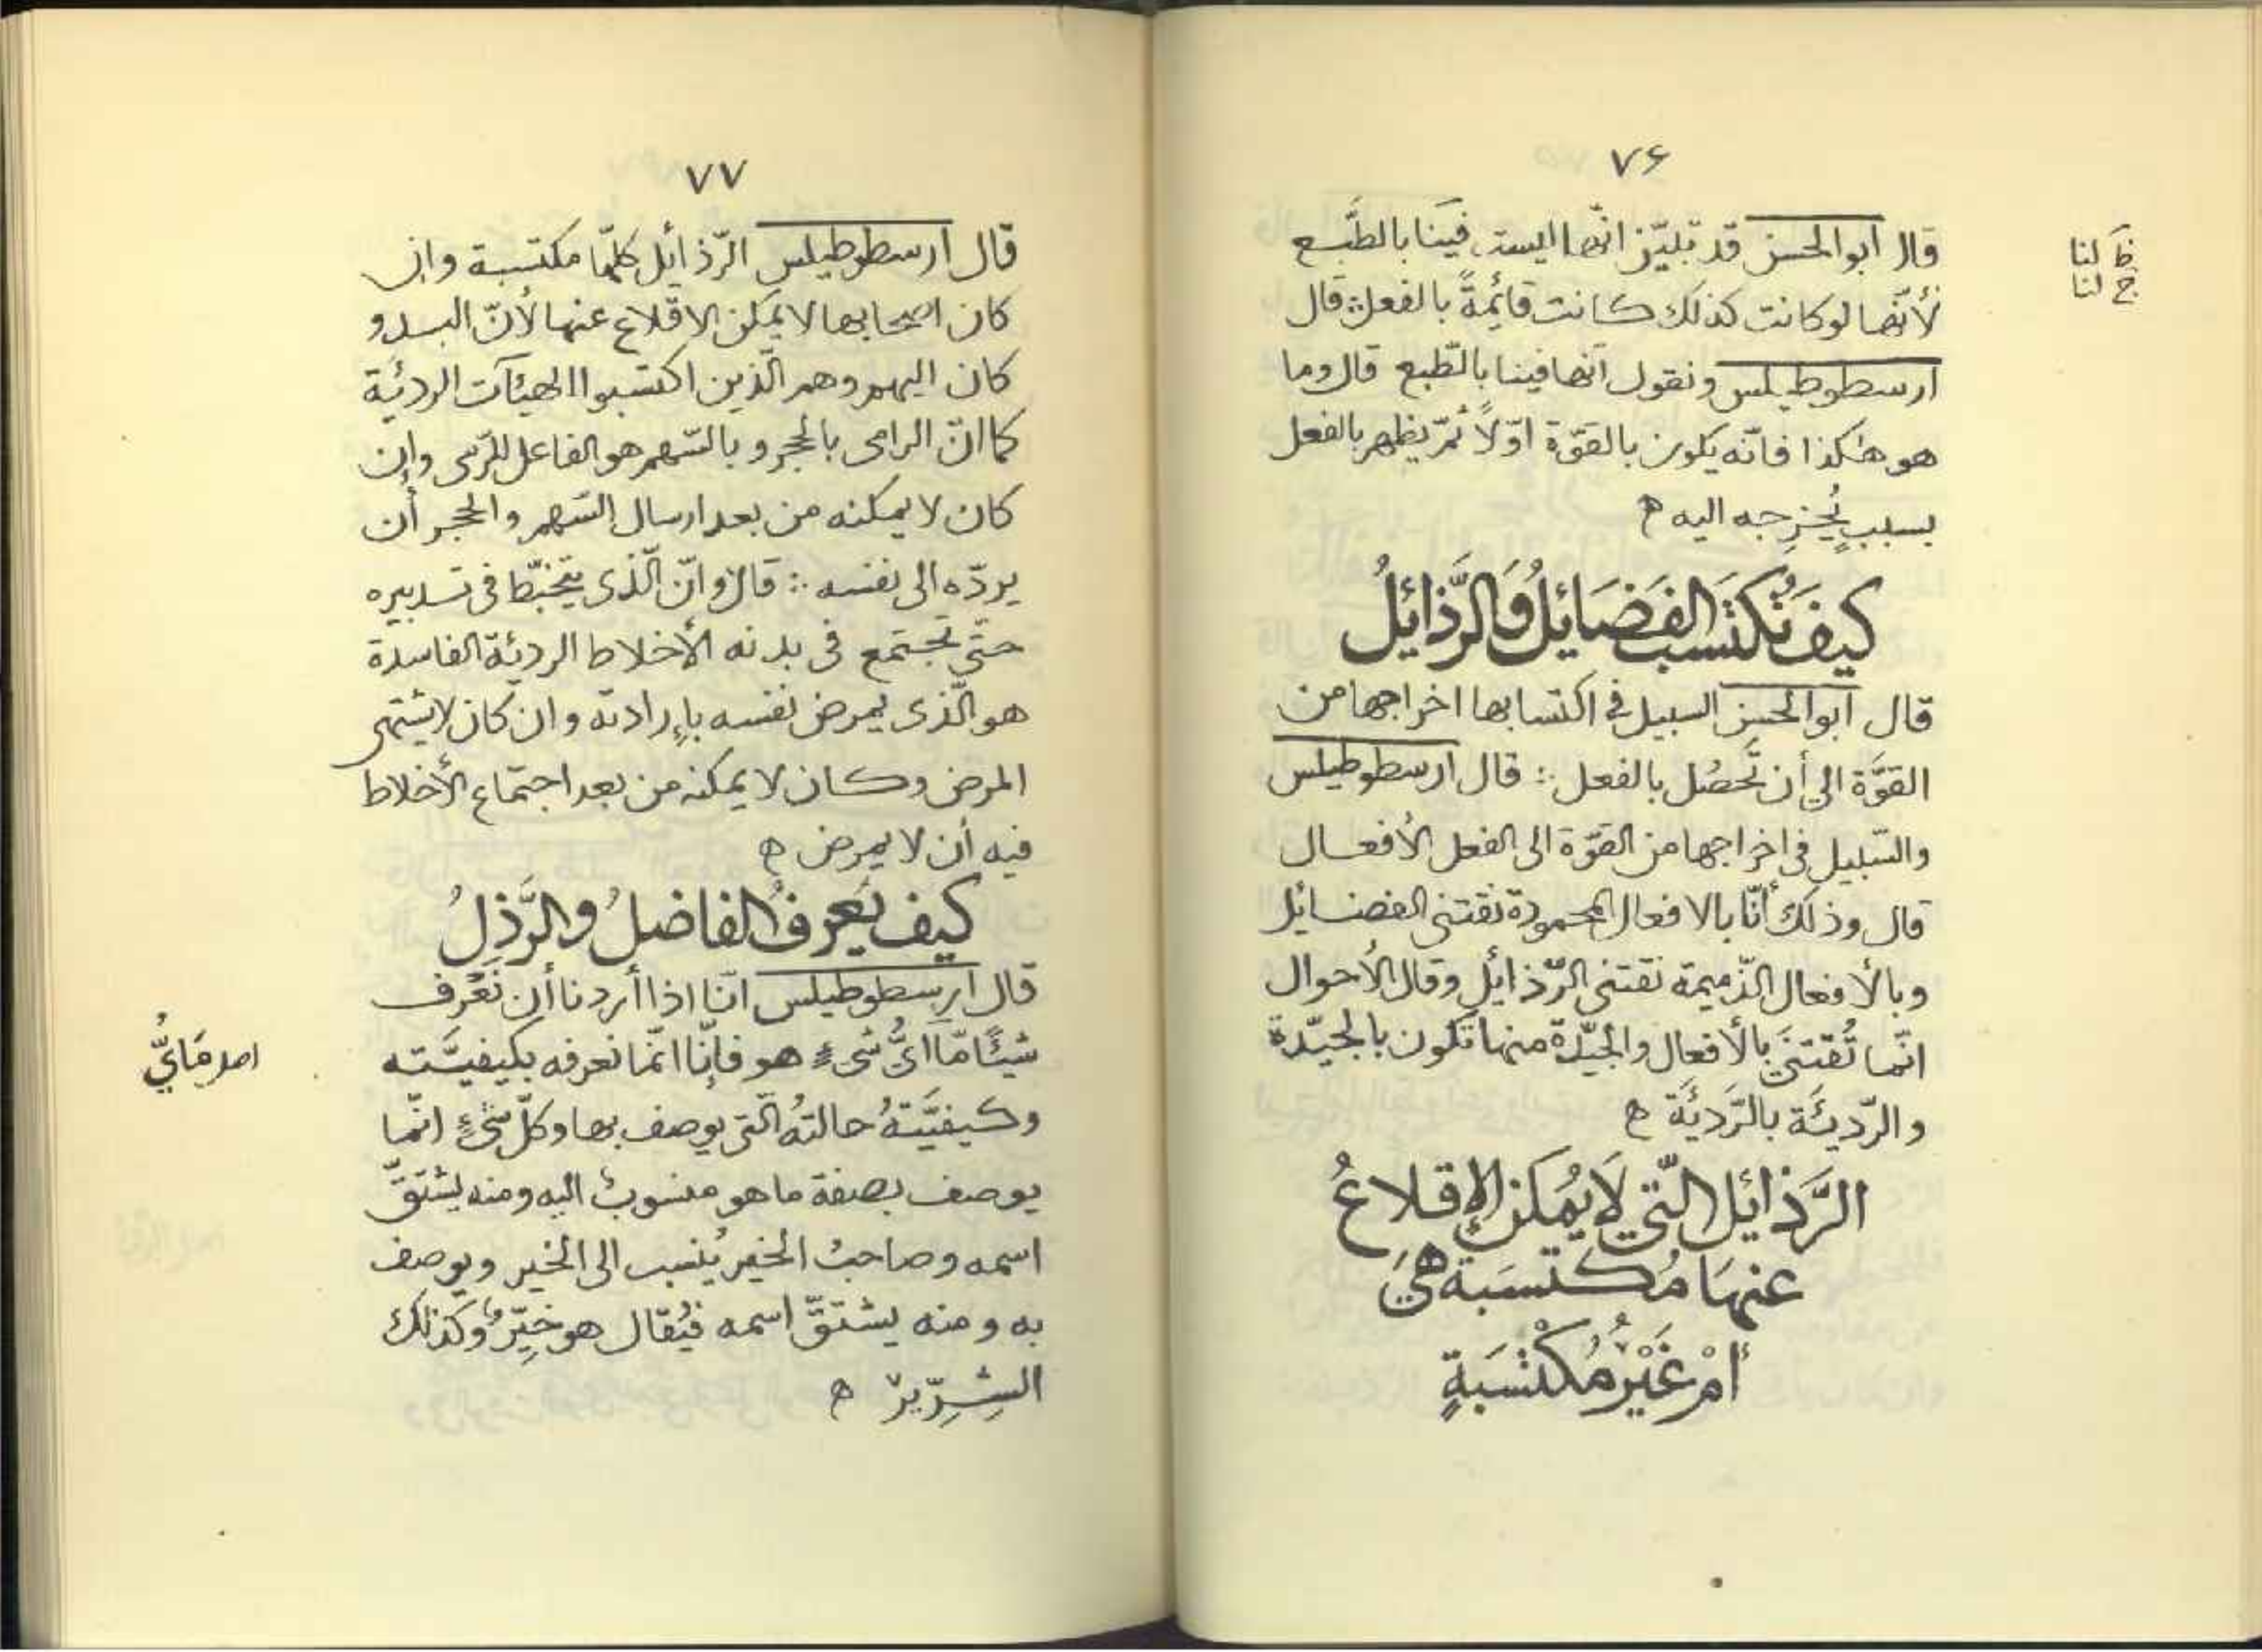 ٧۶
قال ابوالحسن قد تبيّن انّها ليست فينا بالطَّبع
لأنّها لو كانت كذلك كانت قائمةً بالفعل ∴ قال
ارسطوطيلس ونقول انّها فينا بالطّبع قال وما
هو هٰكذا فانّه يكون بالقوّة اوّلاً ثمّ يظهر بالفعل
بسببٍ يُخرِجه اليه ه
كيفَ تُكتَسَب الفَضَائلُ وَالرَّذائلُ
قال ابوالحسن السبيل في اكتسابها اخراجها من
القوَّة الى أن تَحصُل بالفعل ∴ قال ارسطوطيلس
والسّبيل فى اخراجها من القوّة الى الفعل الأفعال
قال وذلك أنّا بالافعال المحمودة نقتنى الفضائل
وبالأفعال الذّميمة نقتنى الرّذائل وقال الأحوال
انّما تُقتنىَ بالأفعال والجيّدة منها تكون بالجيّدة
والرّديئَة بالرَّديئَة ه
الرَّذائل الّتي لَا يُمكن الإقلاعُ
عنهَا مُكتسَبة هيَ
أمْ غَيْرُ مُكْتسَبةٍ
ظ لنا
خ لنا
٧٧
قال ارسطوطيلس الرّذائل كلّها مكتسبة وان
كان اصحابها لا يمكن الاقلاع عنها لأنّ البدو
كان اليهم وهم الّذين اكتسبوا الهيئآت الرديئة
كما انّ الرامى بالحجر و بالسّهم هو الفاعل للرّمى وإن
كان لا يمكنه من بعد ارسال السّهم والحجر أن
يردّه الى نفسه ∴ قال وانّ الّذى يتخبّط فى تدبيره
حتّى تجتمع فى بدنه الأخلاط الرديئة الفاسدة
هو الّذى يمرض نفسه بإرادته وان كان لا يشتهى
المرض وكان لا يمكنه من بعد اجتماع الأخلاط
فيه أن لا يمرض ه
كيف يَعرفُ الفاضلُ والرَّذِلُ
قال ارسطوطيلس انّا اذا أردنا أن نَعْرف
شيئًا مّا أىُّ شىء هو فإنّا انّما نعرفه بكيفيَّته
وكيفيَّتهُ حالتهُ الّتى يوصف بها وكلّ شىءٍ انّما
يوصف بصفة ما هو منسوبٌ اليه ومنه يشتقّ
اسمه وصاحبُ الخير يُنسب الى الخير ويوصف
به ومنه يشتقّ اسمه فيُقال هو خيِّرٌ وكذلك
الشِرِّير ه